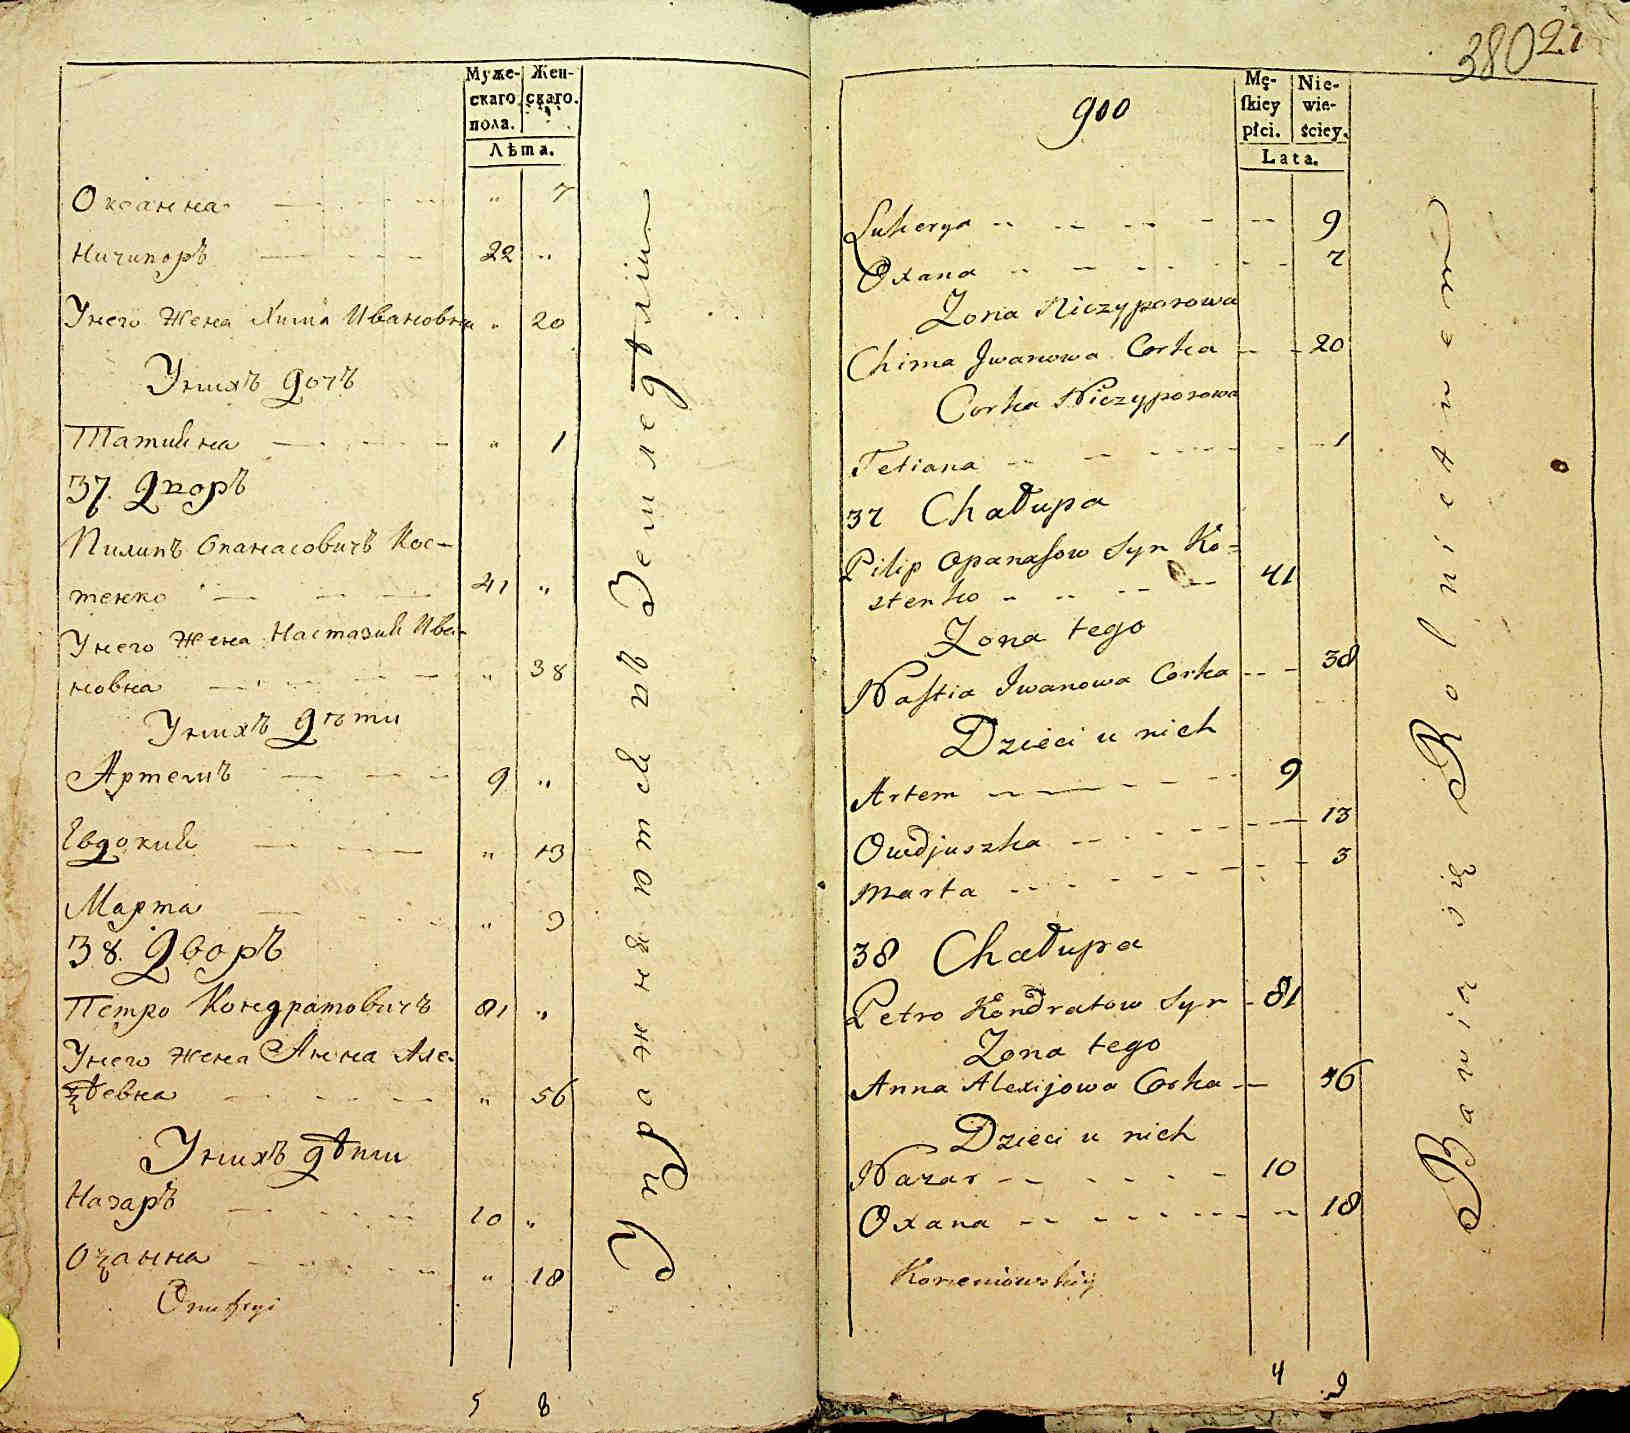 Муже-
скаго
пола.
Жен-
скаго.
Лѣта.
Оксанна 〃 7
Ничипоръ 22 〃
Унего Жена Хима Ивановна 〃 20
Унихъ дочь
Татиана 〃 1
37. Дворъ
Пилипъ Опанасовичъ Кос-
тенко 41 〃
Унего Жена Настазия Ива-
новна 〃 38
Унихъ дѣти
Артемъ 9 〃
Евдокия 〃 13
Марта 〃 3
38. Дворъ
Петро Кондратовичъ 81 〃
Унего жена Анна Але-
ѯѣевна 〃 56
Унихъ дѣти
Назаръ 10 〃
Оѯанна 〃 18
Onufryi
5 8
Упражняются въ Земледѣліи
380 21
900
Mę-
skiey
płci.
Nie-
wie-
ściey.
Lata.
Lukerya 9
Oxana 7
Zona Niczyporowa
Chima Jwanowa Corka 20
Corka Niczyporowa
Tetiana 1
37 Chałupa
Pilip Opanasow Syn Ko=
stenko 41
Zona tego
Nastia Jwanowa Corka 38
Dzieci u nich
Artem 9
Owdjuszka 13
Marta 3
38 Chałupa
Petro Kondratow Syn 81
Zona tego
Anna Alexijowa Corka 56
Dzieci u nich
Nazar 10
Oxana 18
Korzeniowskij
4 9
Bawią się Rolnictwem